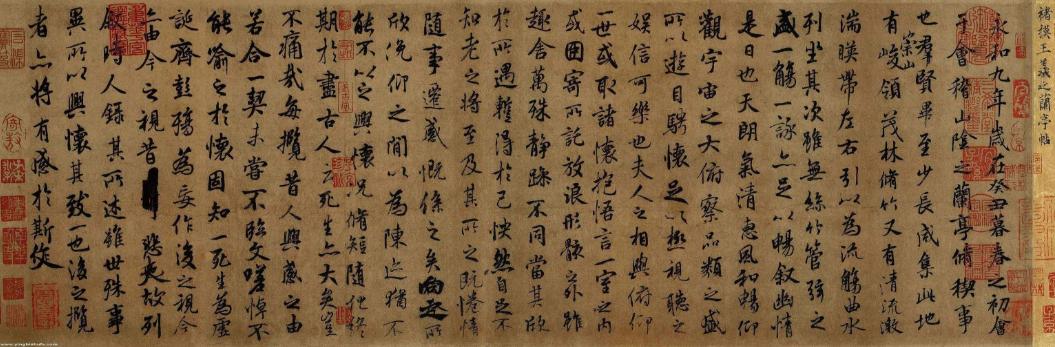 褚模王羲之蘭亭帖
永和九年歲在癸丑暮春之初會
于會稽山陰之蘭亭脩稧事
也群賢畢至少長咸集此地
有崇山峻領茂林脩竹又有清流激
湍暎帶左右引以為流觴曲水
列坐其次雖無絲竹管弦之
盛一觴一詠亦足以暢敘幽情
是日也天朗氣清惠風和暢仰
觀宇宙之大俯察品類之盛
所以遊目騁懷足以極視聽之
娛信可樂也夫人之相與俯仰
一世或取諸懷抱悟言一室之內
或因寄所託放浪形骸之外雖
趣舍萬殊靜躁不同當其欣
於所遇暫得於己怏然自足不
知老之將至及其所之既惓情
隨事遷感慨係之矣向之所
欣俛仰之間以為陳迹猶不
能不以之興懷況脩短隨化終
期於盡古人云死生亦大矣豈
不痛哉每攬昔人興感之由
若合一契未嘗不臨文嗟悼不
能喻之於懷固知一死生為虛
誕齊彭殤為妄作後之視今
亦由今之視昔悲夫故列
敘時人錄其所述雖世殊事
異所以興懷其致一也後之攬
者亦將有感於斯文